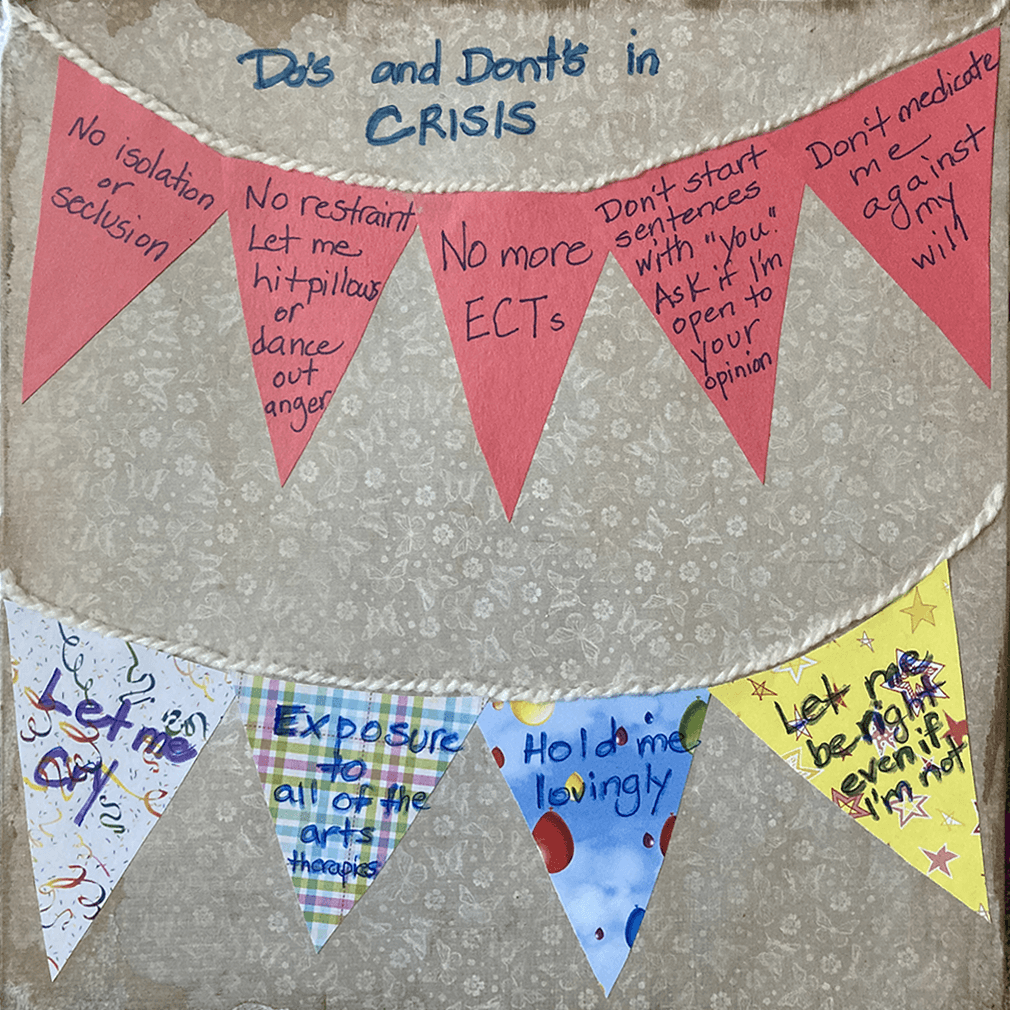 Do's and Dont's in
CRISIS
No isolation
or
seclusion
No restraint
Let me
hit pillows
or
dance
out
anger
No more
ECTs
Don't start
sentences
with "you."
Ask if I'm
open to
your
opinion
Don't medicate
me
against
my
will
Let me
Cry
Exposure
to
all of the
arts
therapies
Hold me
lovingly
Let me
be right
even if
I'm not